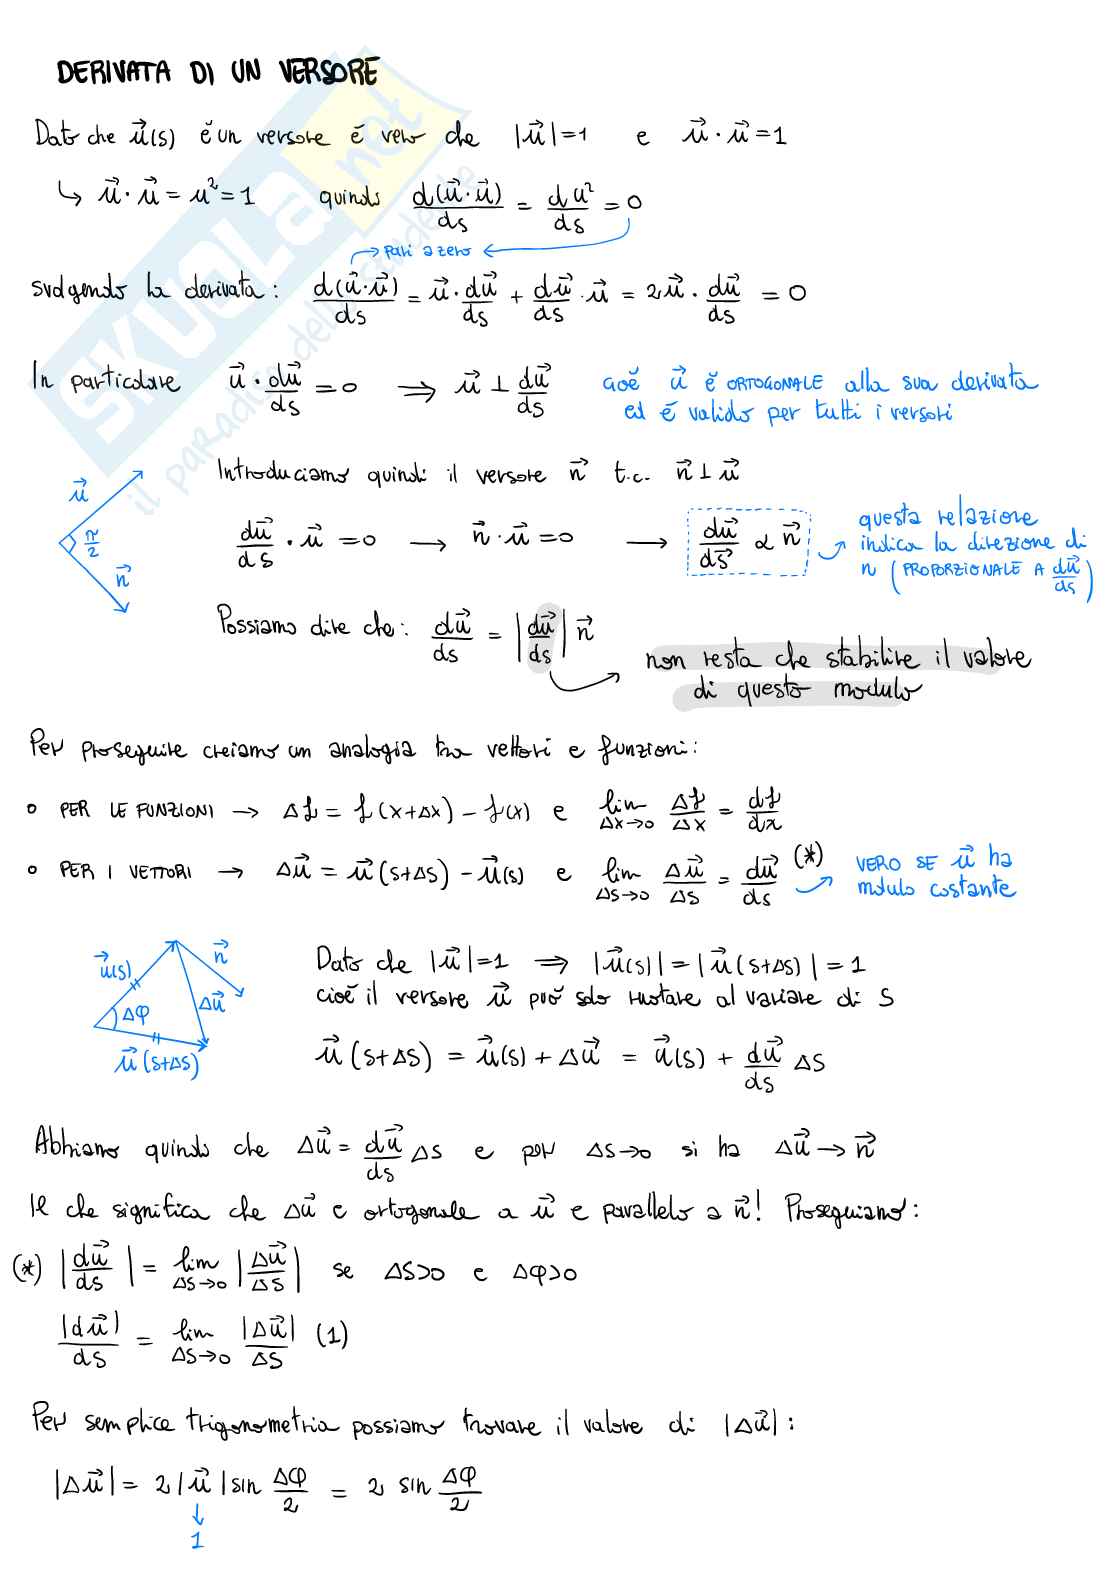 DERIVATA DI UN VERSORE
Dato che u⃗(s) é un versore é vero che |u⃗|=1 e u⃗·u⃗=1
↳ u⃗·u⃗ = u²=1 quindi d(u⃗·u⃗)/ds = du²/ds = 0
→ pari a zero ←
svolgendo la derivata: d(u⃗·u⃗)/ds = u⃗·du⃗/ds + du⃗/ds·u⃗ = 2u⃗·du⃗/ds = 0
In particolare u⃗·du⃗/ds = 0 ⟹ u⃗ ⊥ du⃗/ds cioé u⃗ é ORTOGONALE alla sua derivata
ed é valido per tutti i versori
Introduciamo quindi il versore n⃗ t.c. n⃗⊥u⃗
u⃗
π/2
n⃗
du⃗/ds · u⃗ = 0 → n⃗·u⃗ = 0 → du⃗/ds⃗ ∝ n⃗
questa relazione
indica la direzione di
n (PROPORZIONALE A du⃗/ds)
Possiamo dire che: du⃗/ds = |du⃗/ds| n⃗
non resta che stabilire il valore
di questo modulo
Per proseguire creiamo un analogia tra vettori e funzioni:
o PER LE FUNZIONI → Δf = f(x+Δx) - f(x) e lim Δx→0 Δf/Δx = df/dx
o PER I VETTORI → Δu⃗ = u⃗(s+Δs) - u⃗(s) e lim Δs→0 Δu⃗/Δs = du⃗/ds (*) VERO SE u⃗ ha
modulo costante
u⃗(s)
n⃗
Δφ
Δu⃗
u⃗(s+Δs)
Dato che |u⃗|=1 ⟹ |u⃗(s)|=|u⃗(s+Δs)|=1
cioé il versore u⃗ può solo ruotare al variare di S
u⃗(s+Δs) = u⃗(s) + Δu⃗ = u⃗(s) + du⃗/ds Δs
Abbiamo quindi che Δu⃗ = du⃗/ds Δs e per Δs→0 si ha Δu⃗ → n⃗
Il che significa che Δu⃗ e ortogonale a u⃗ e parallelo a n⃗! Proseguiamo:
(*) |du⃗/ds| = lim Δs→0 |Δu⃗/Δs| se Δs>0 e Δφ>0
|du⃗|/ds = lim Δs→0 |Δu⃗|/Δs (1)
Per semplice trigonometria possiamo trovare il valore di |Δu⃗|:
|Δu⃗| = 2|u⃗|sin Δφ/2 = 2 sin Δφ/2
↓
1
SKUOLA.net
il paradiso dello studente